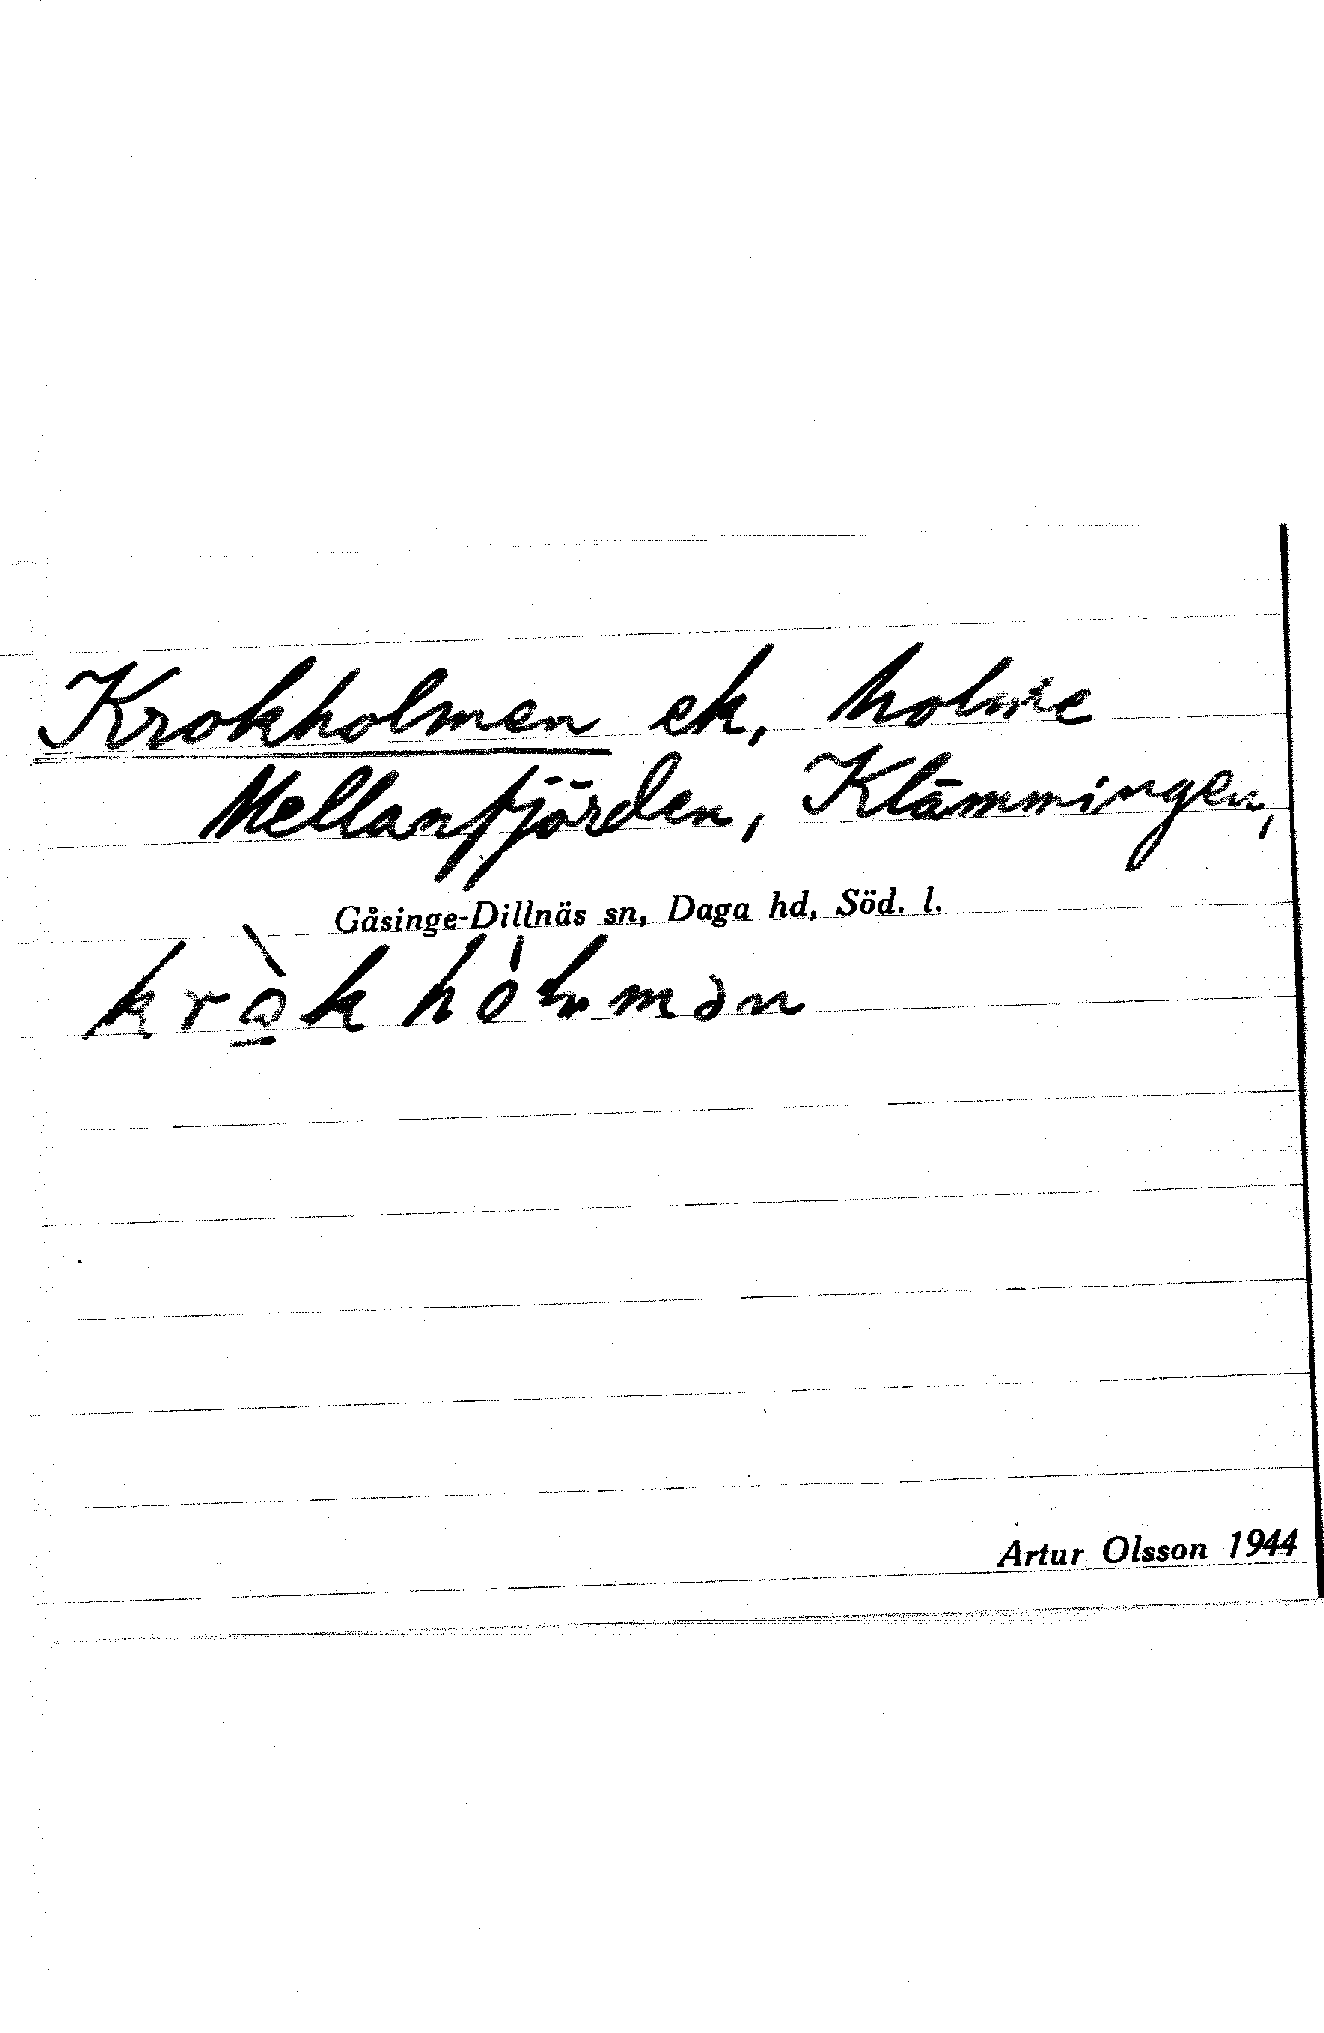 Krokholmen ek, holme
Mellanfjärden, Klämmingen,
Gåsinge-Dillnäs sn, Daga hd, Söd. l.
Artur Olsson 1944